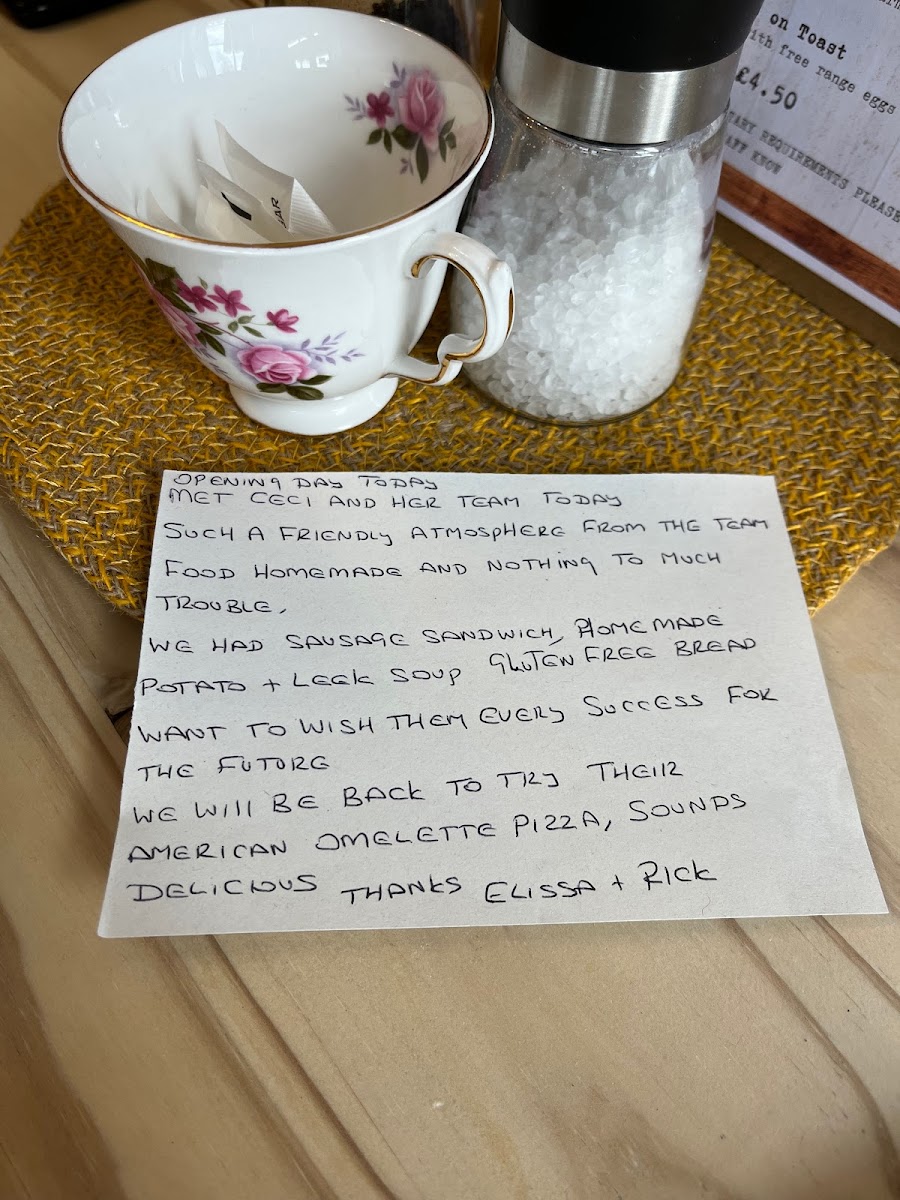 on Toast
with free range eggs
£4.50
REQUIREMENTS PLEASE
KNOW
OPENING DAY TODAY
MET CECI AND HER TEAM TODAY
SUCH A FRIENDLY ATMOSPHERE FROM THE TEAM
FOOD HOMEMADE AND NOTHING TO MUCH
TROUBLE,
WE HAD SAUSAGE SANDWICH, HOMEMADE
POTATO + LEEK SOUP GLUTEN FREE BREAD
WANT TO WISH THEM EVERY SUCCESS FOR
THE FUTURE
WE WILL BE BACK TO TRY THEIR
AMERICAN OMELETTE PIZZA, SOUNDS
DELICIOUS THANKS ELISSA + RICK